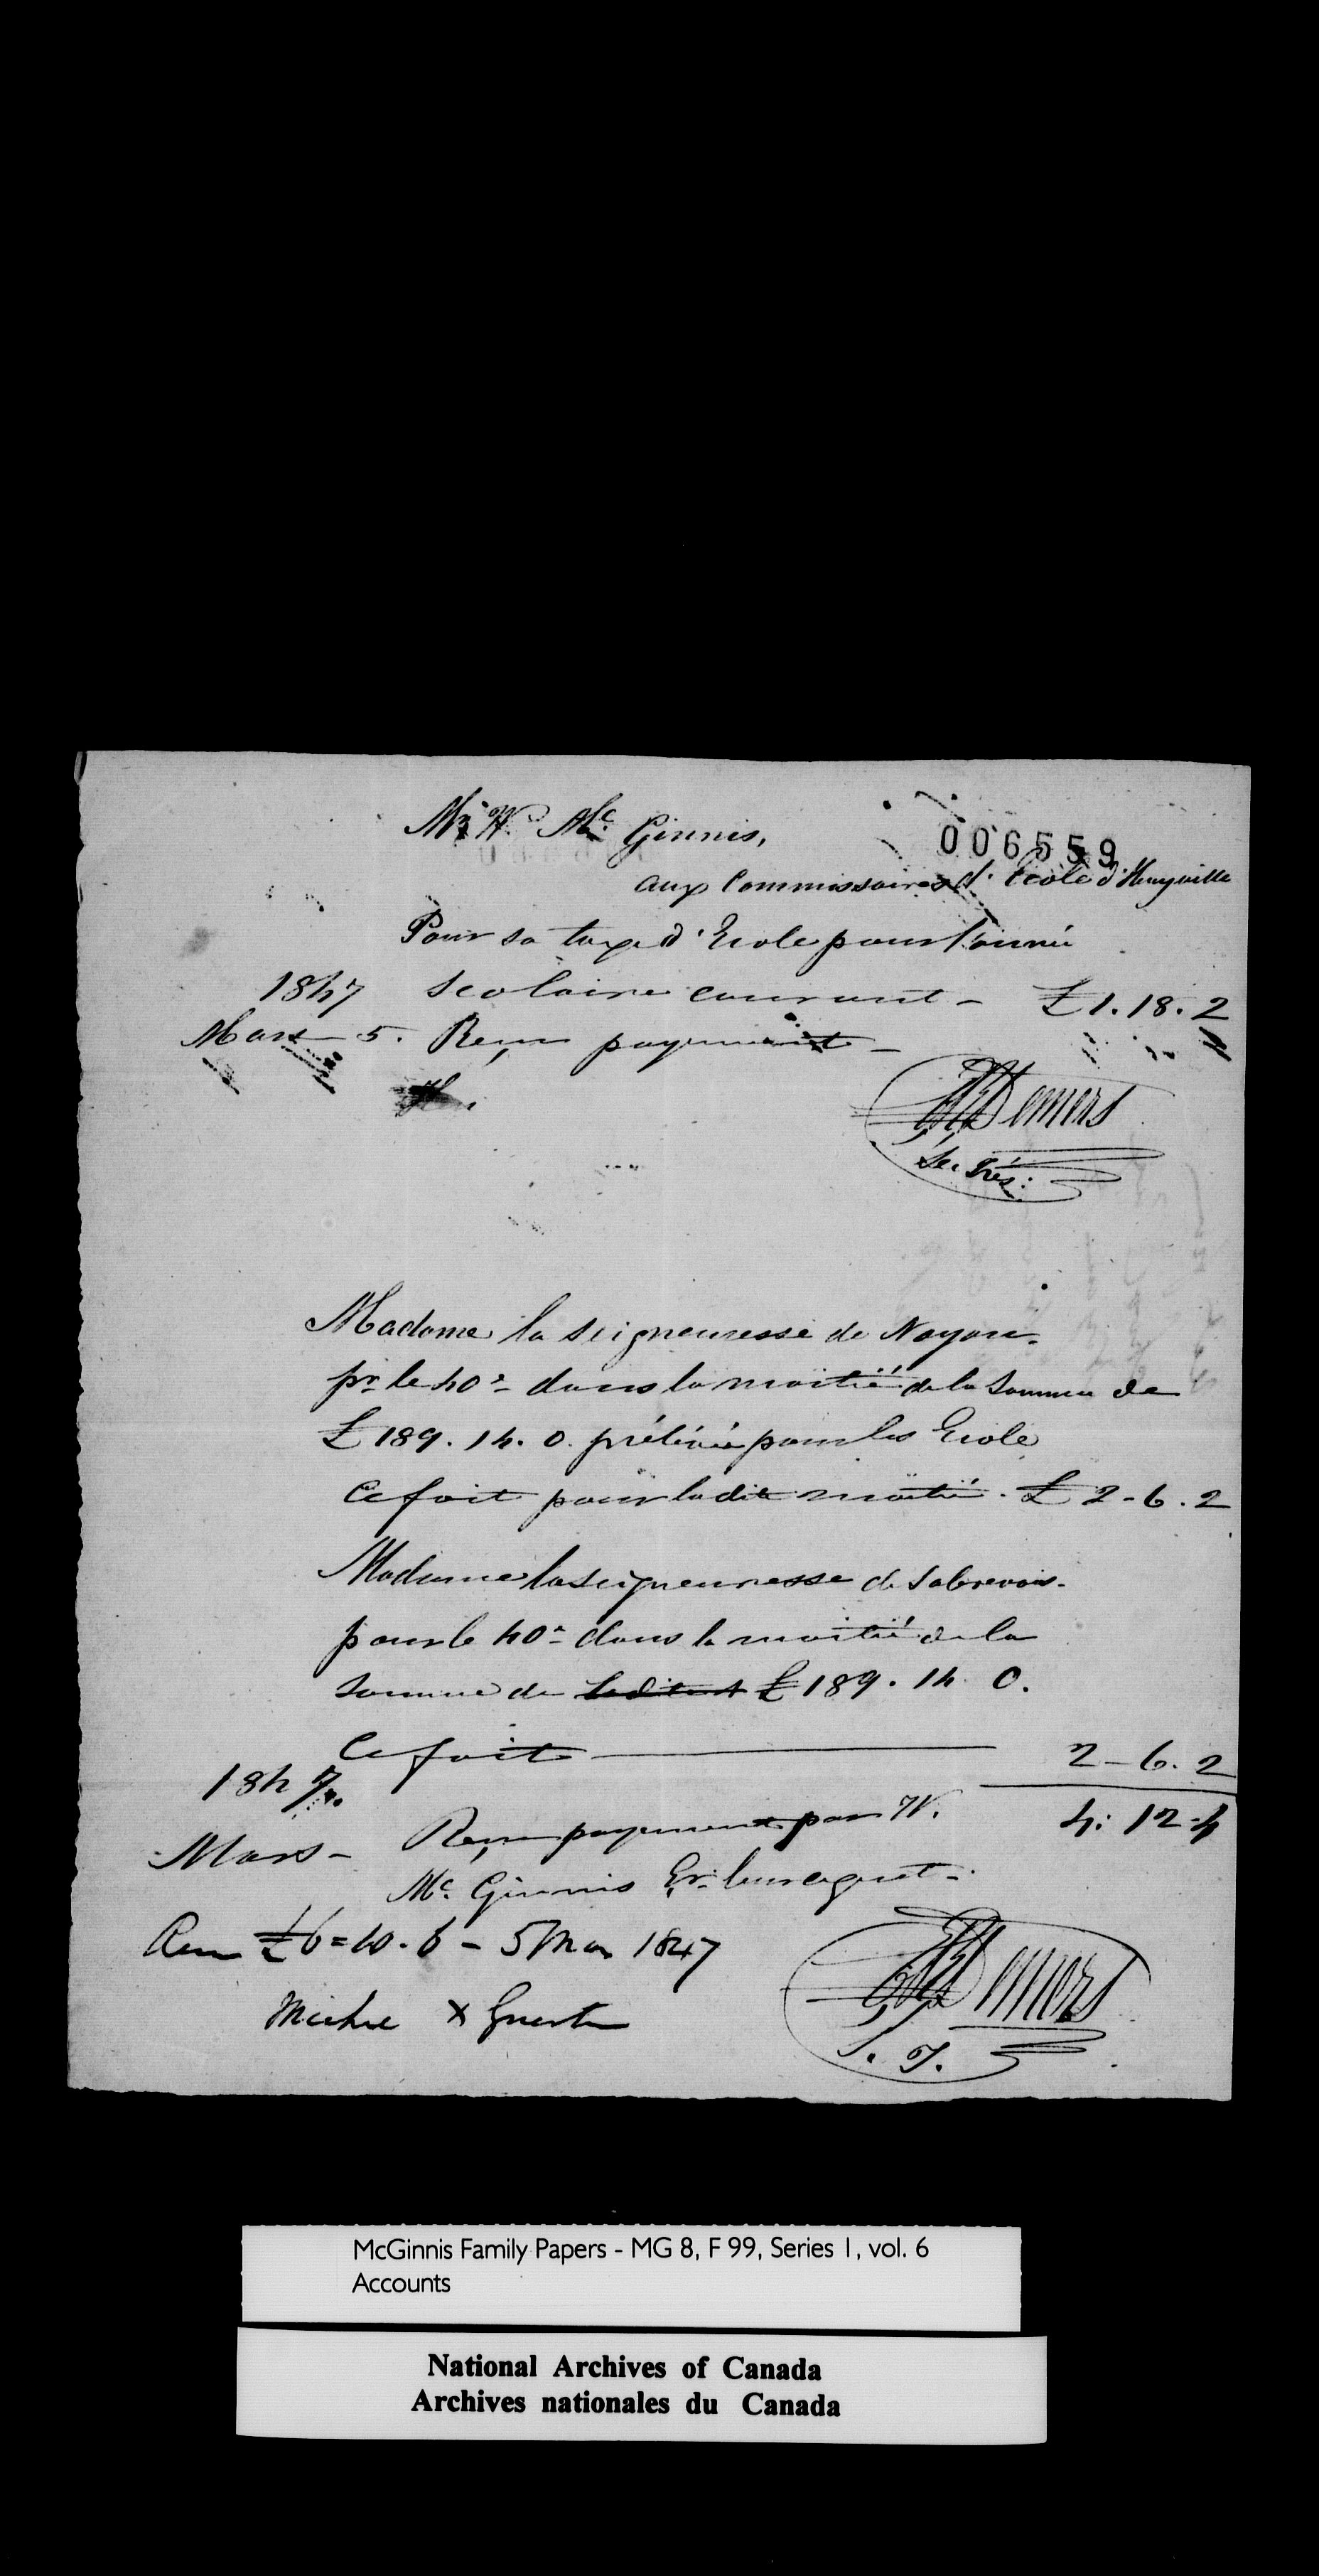 Mr. W. Mc. Ginnis,
006559
aux Commissaires d'Ecole d'Henryville
Pour sa taxe d'Ecole pour l'année
1847 scolaire courant - £1.18.2
Mars 5. Reçu payement -
Demers
Sec. Trés:
Madame la seigneuresse de Noyan.
pr le 40e dans la moitié de la Somme de
£189.14.0. prélévée pour les Ecole
Ce fait pour la dite moitié. £2-6.2
Madame la seigneuresse de Sabrevois.
pour le 40e dans la moitié de la
Somme de £189.14 0.
Ce fait 2-6.2
1847
Mars - Reçu payement par W. 4:12-4
Mc. Ginnis Er. leur agent.
£6=10.6 - 5 Mar 1847
Demers
X
S. T.
McGinnis Family Papers - MG 8, F 99, Series 1, vol. 6
Accounts
National Archives of Canada
Archives nationales du Canada